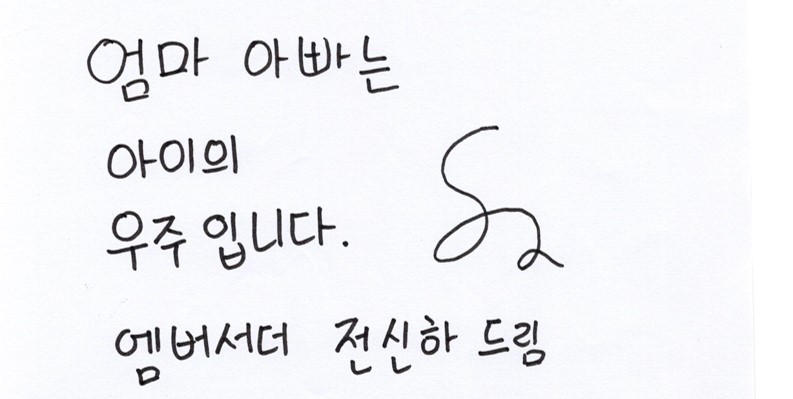 엄마 아빠는
아이의
우주입니다.
엠버서더 전신하 드림